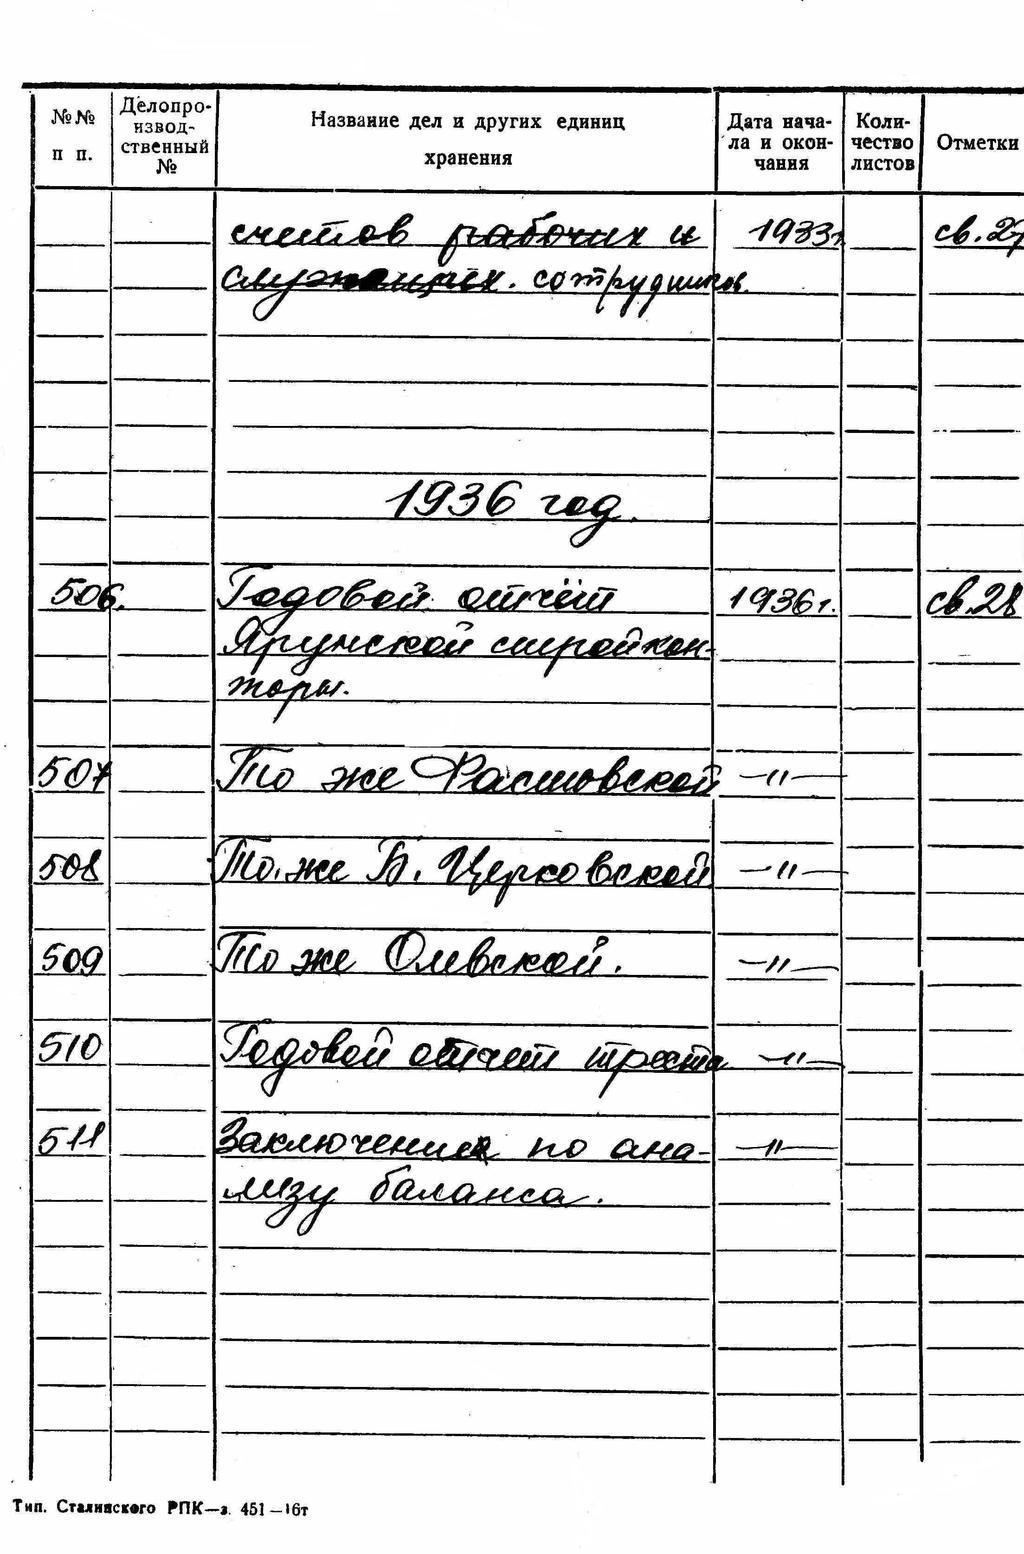 №№ п п. Делопроизводственный № Название дел и других единиц хранения Дата начала и окончания Количество листов Отметки
счетов рабочих и 1933г св.27
служащих. сотрудников.
1936 год.
506. Годовой отчёт 1936г. св.28
Ярунской стройкон-
торы.
507 То же Фастовской —"—
508 То же Б. Церковской —"—
509 То же Олевской. —"—
510 Годовой отчет треста —"—
511 Заключения по ана- —"—
лизу баланса.
Тип. Сталинского РПК—з. 451—16т